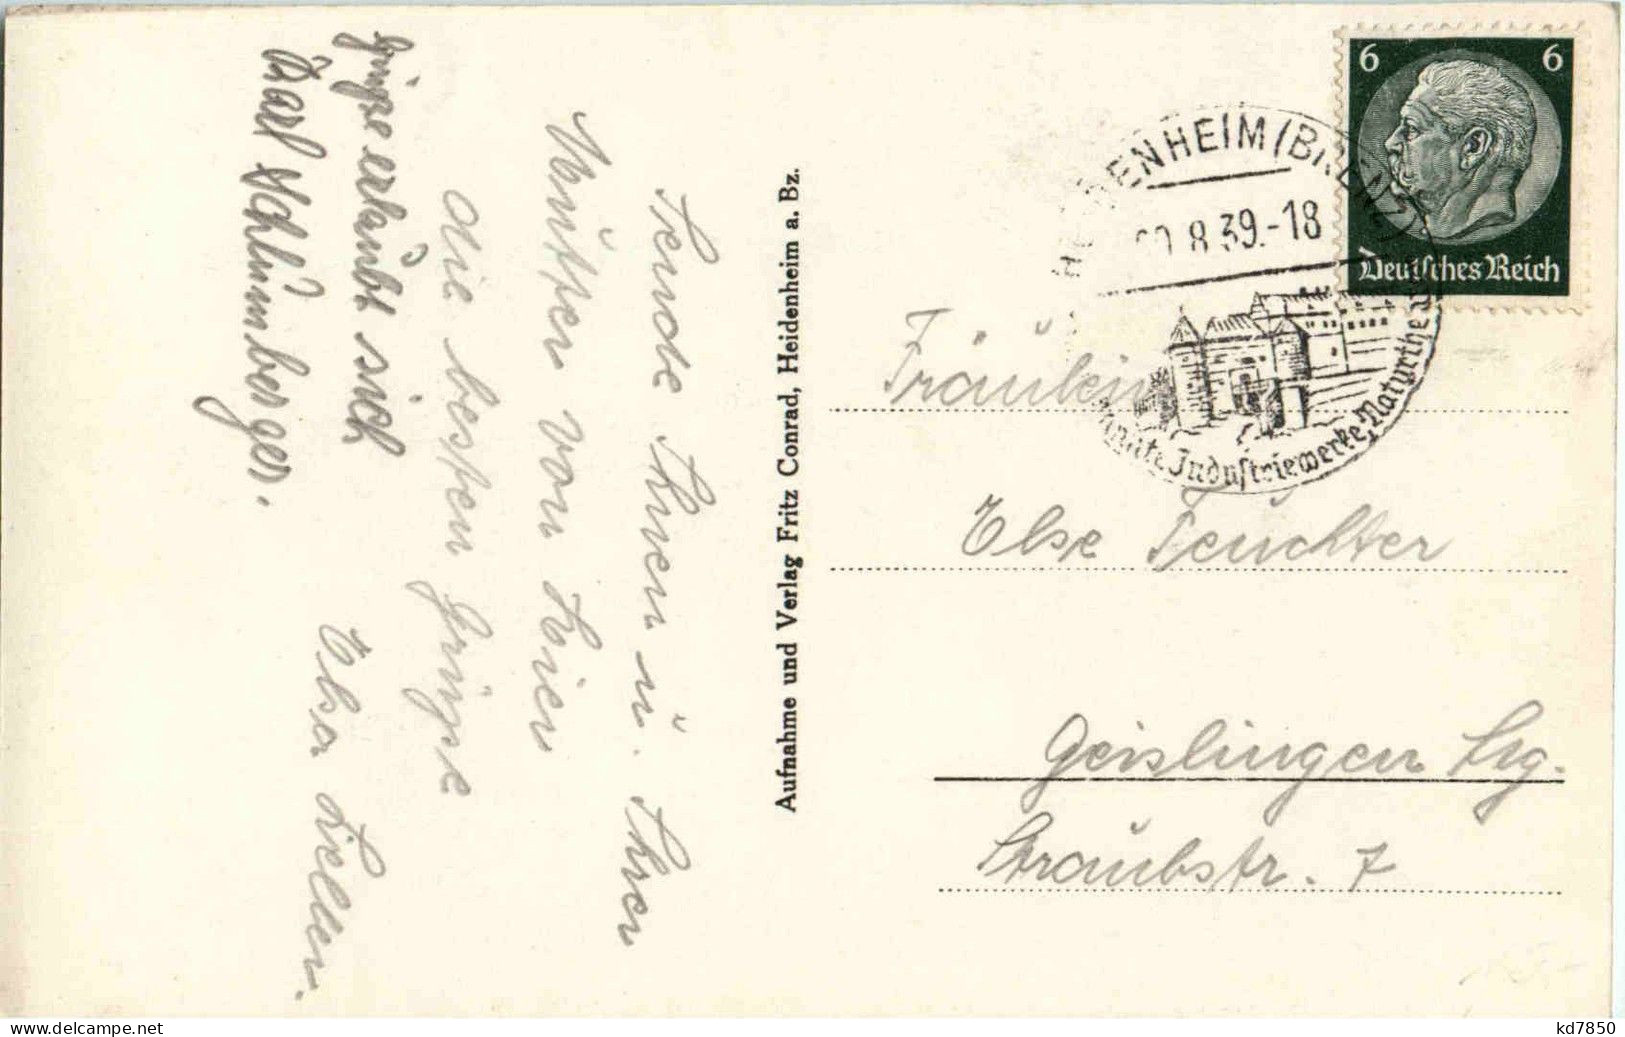 Sende Ihnen u. Ihrer
Mutter von hier
die besten Grüsse
Elsa Keller.
Grüsse erlaubt sich
Karl Schlumberger.
Aufnahme und Verlag Fritz Conrad, Heidenheim a. Bz.
6 6
Deutsches Reich
HEIDENHEIM (BRENZ)
8.39.-18
Industriewerke, Naturthe
Fräulein
Else Feuchter
Geislingen Stg.
Straubstr. 7
www.delcampe.net
kd7850